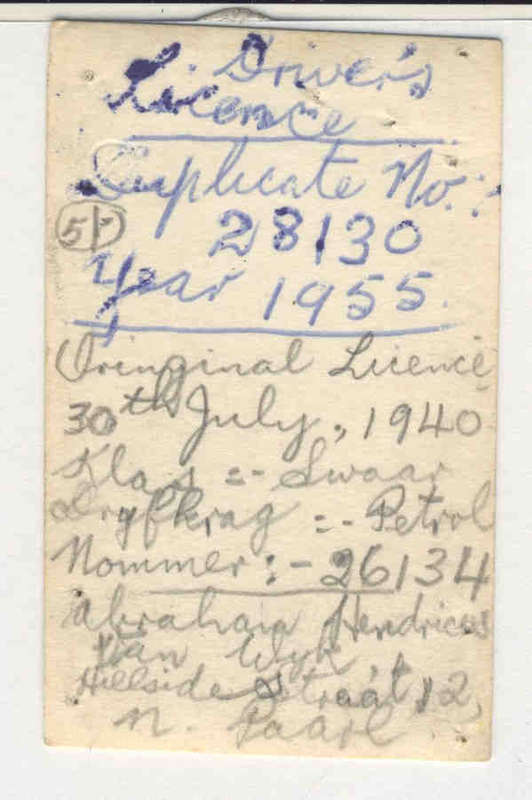 Driver's
Licence
Duplicate No:
5/-
28130
Year 1955.
Oringinal Licence
30th July, 1940
Klas :- Swaar
Dryfkrag :- Petrol
Nommer :- 26134
Abraham Hendricus
Van Wyk,
Hillside Straat 12,
N. Paarl